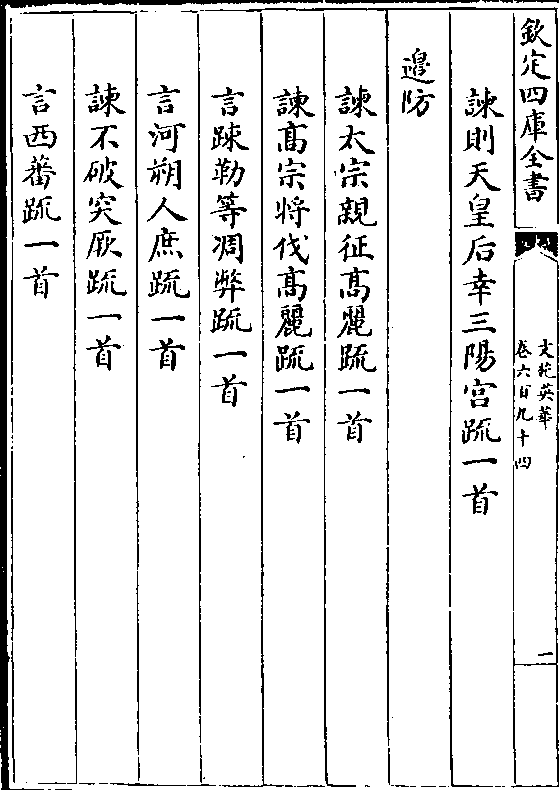 欽定四庫全書
文苑英華
卷六百九十四
一
諫則天皇后幸三陽宫疏一首
邉防
諫太宗親征髙麗疏一首
諫髙宗将伐髙麗疏一首
言踈勒等凋弊疏一首
言河朔人庶疏一首
諫不破突厥疏一首
言西蕃疏一首